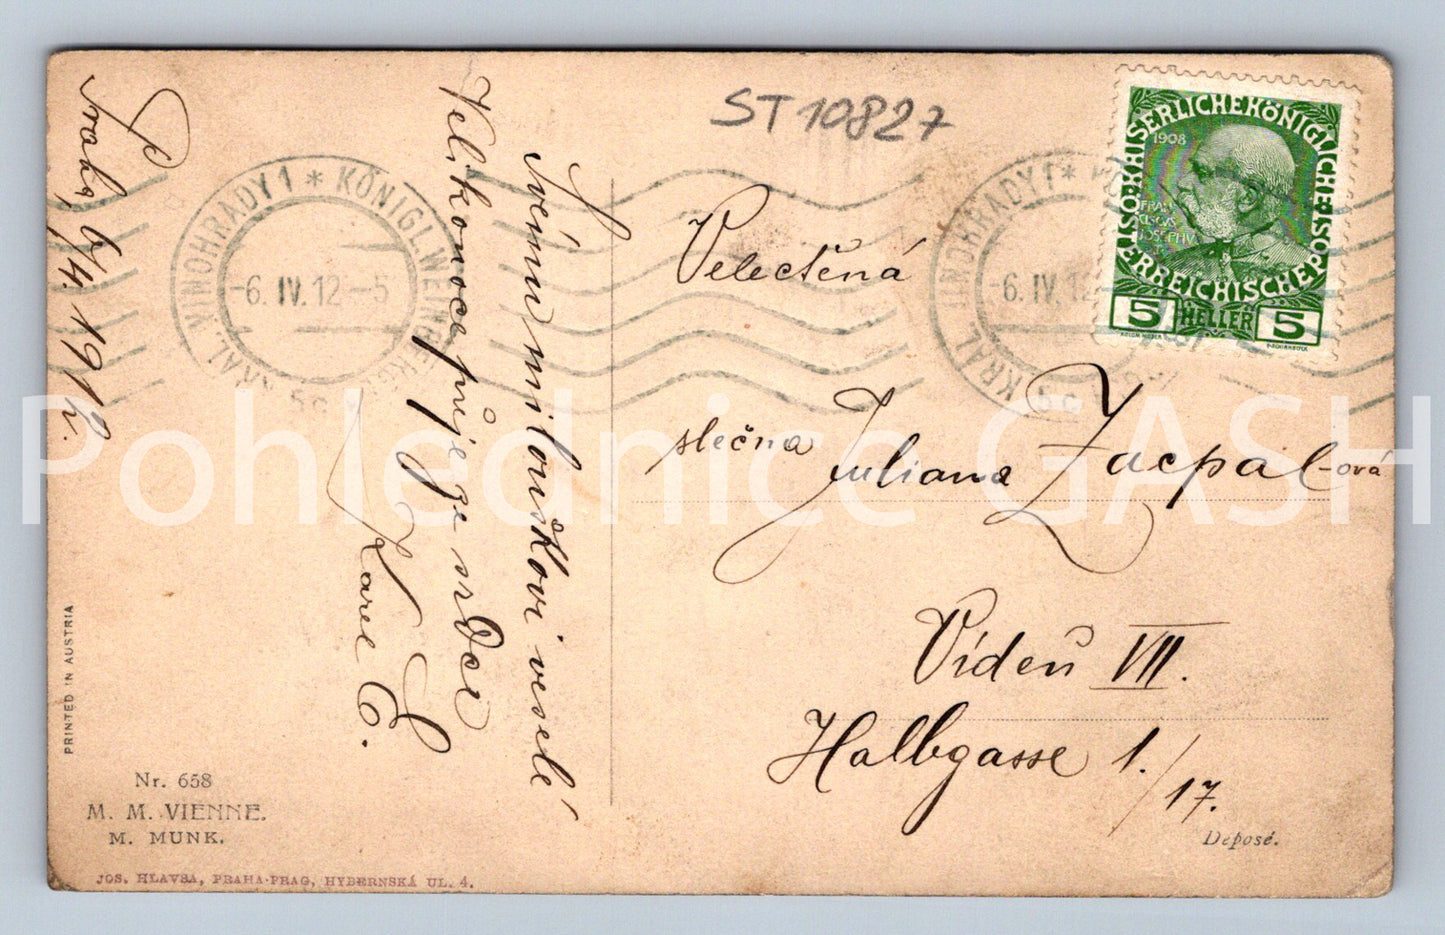 ST 10827
Praha 6/4. 1912.
Svému miloušKovi veselé
Velikonoce přeje ze srdce
Karel C.
Velectěná
slečna Juliana Zacpal-ová
Vídeň VII.
Halbgasse 1./17.
KRÁL. VINOHRADY 1 * KÖNIGL. WEINBERGE
-6. IV. 12 -5
5c
KRÁL. VINOHRADY 1 *
-6. IV. 12
KAISERLICHE KÖNIGLICHE
ÖSTERREICHISCHE POST
1908
FRANCISCVS JOSEPH I
5 HELLER 5
Pohlednice GASH
PRINTED IN AUSTRIA
Nr. 658
M. M. VIENNE.
M. MUNK.
JOS. HLAVSA, PRAHA-PRAG, HYBERNSKÁ UL. 4.
Deposé.